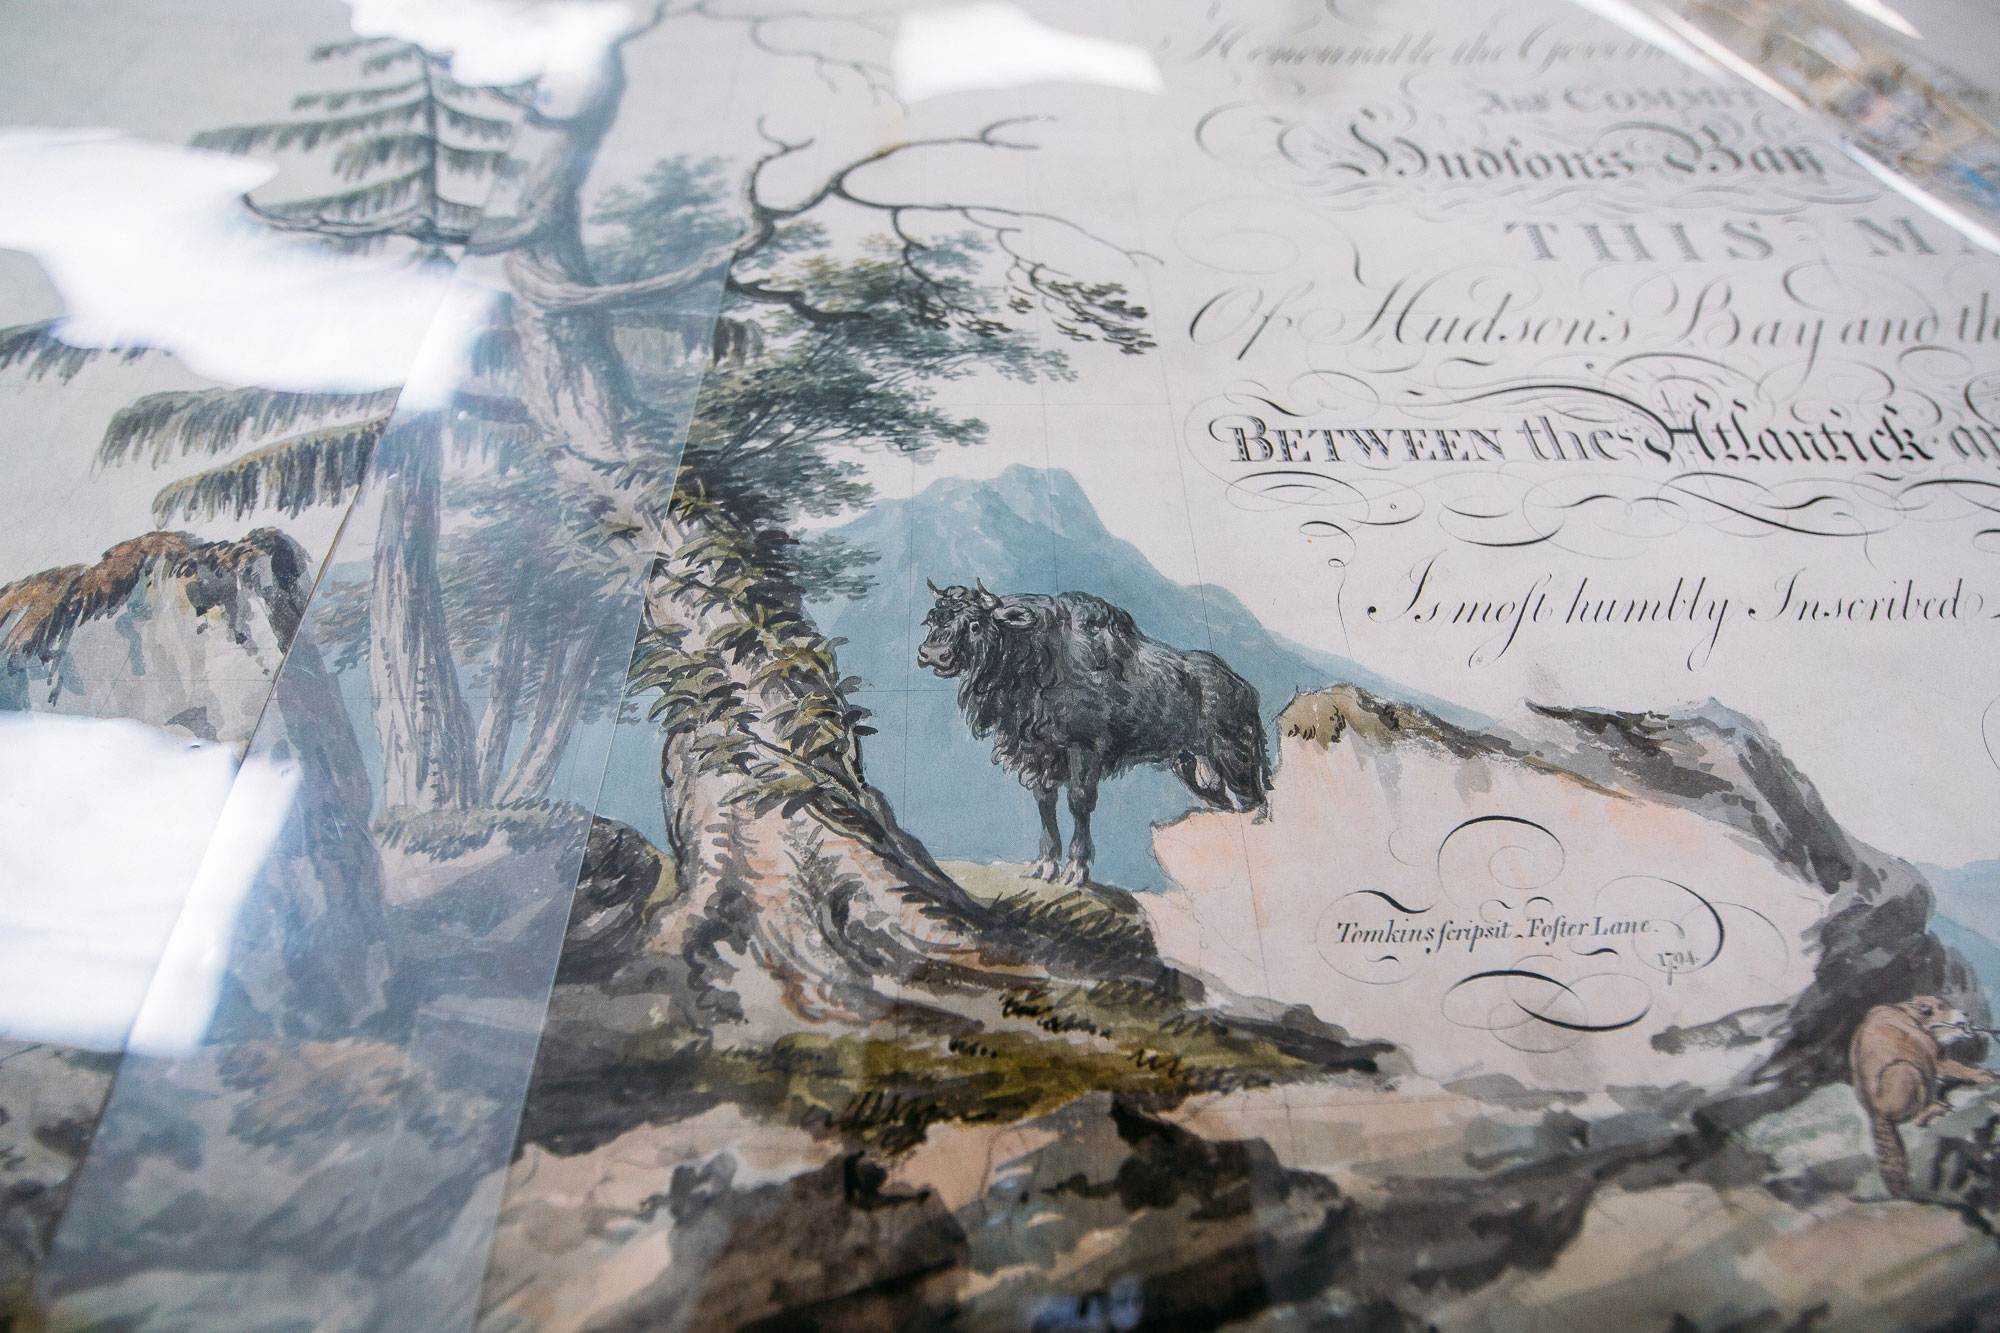 Honourable the Govern
And COMMIT
Hudsons Bay
THIS MA
Of Hudson's Bay and th
BETWEEN the Atlantick an
Is moſt humbly Inscribed
Tomkins ſcripsit Foſter Lane.
1794